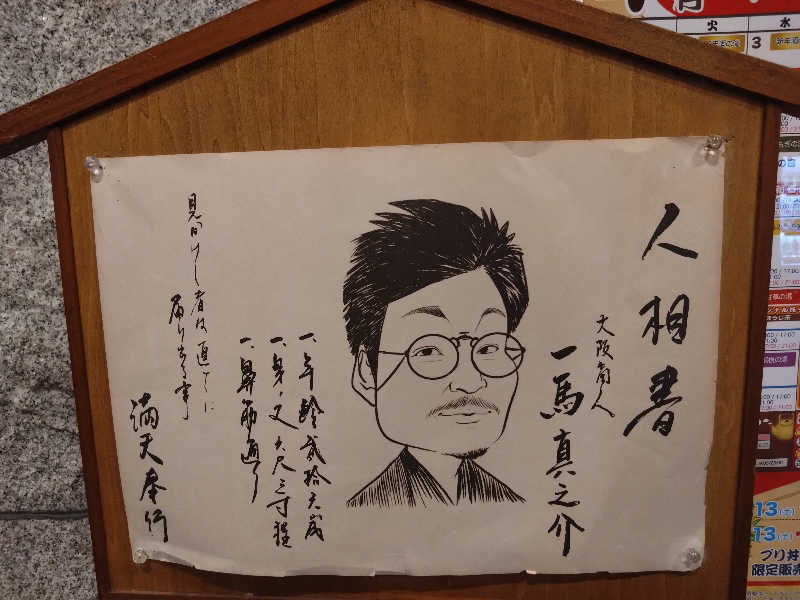 人相書
大阪商人
一馬真之介
一、年齢弐拾六歳
一、身ノ丈六尺三寸程
一、鼻筋通り
見向けし者は直ぐに
届け出る事
満天奉行
火
水
3
13(土)
13(土)
ブリ丼
限定販売